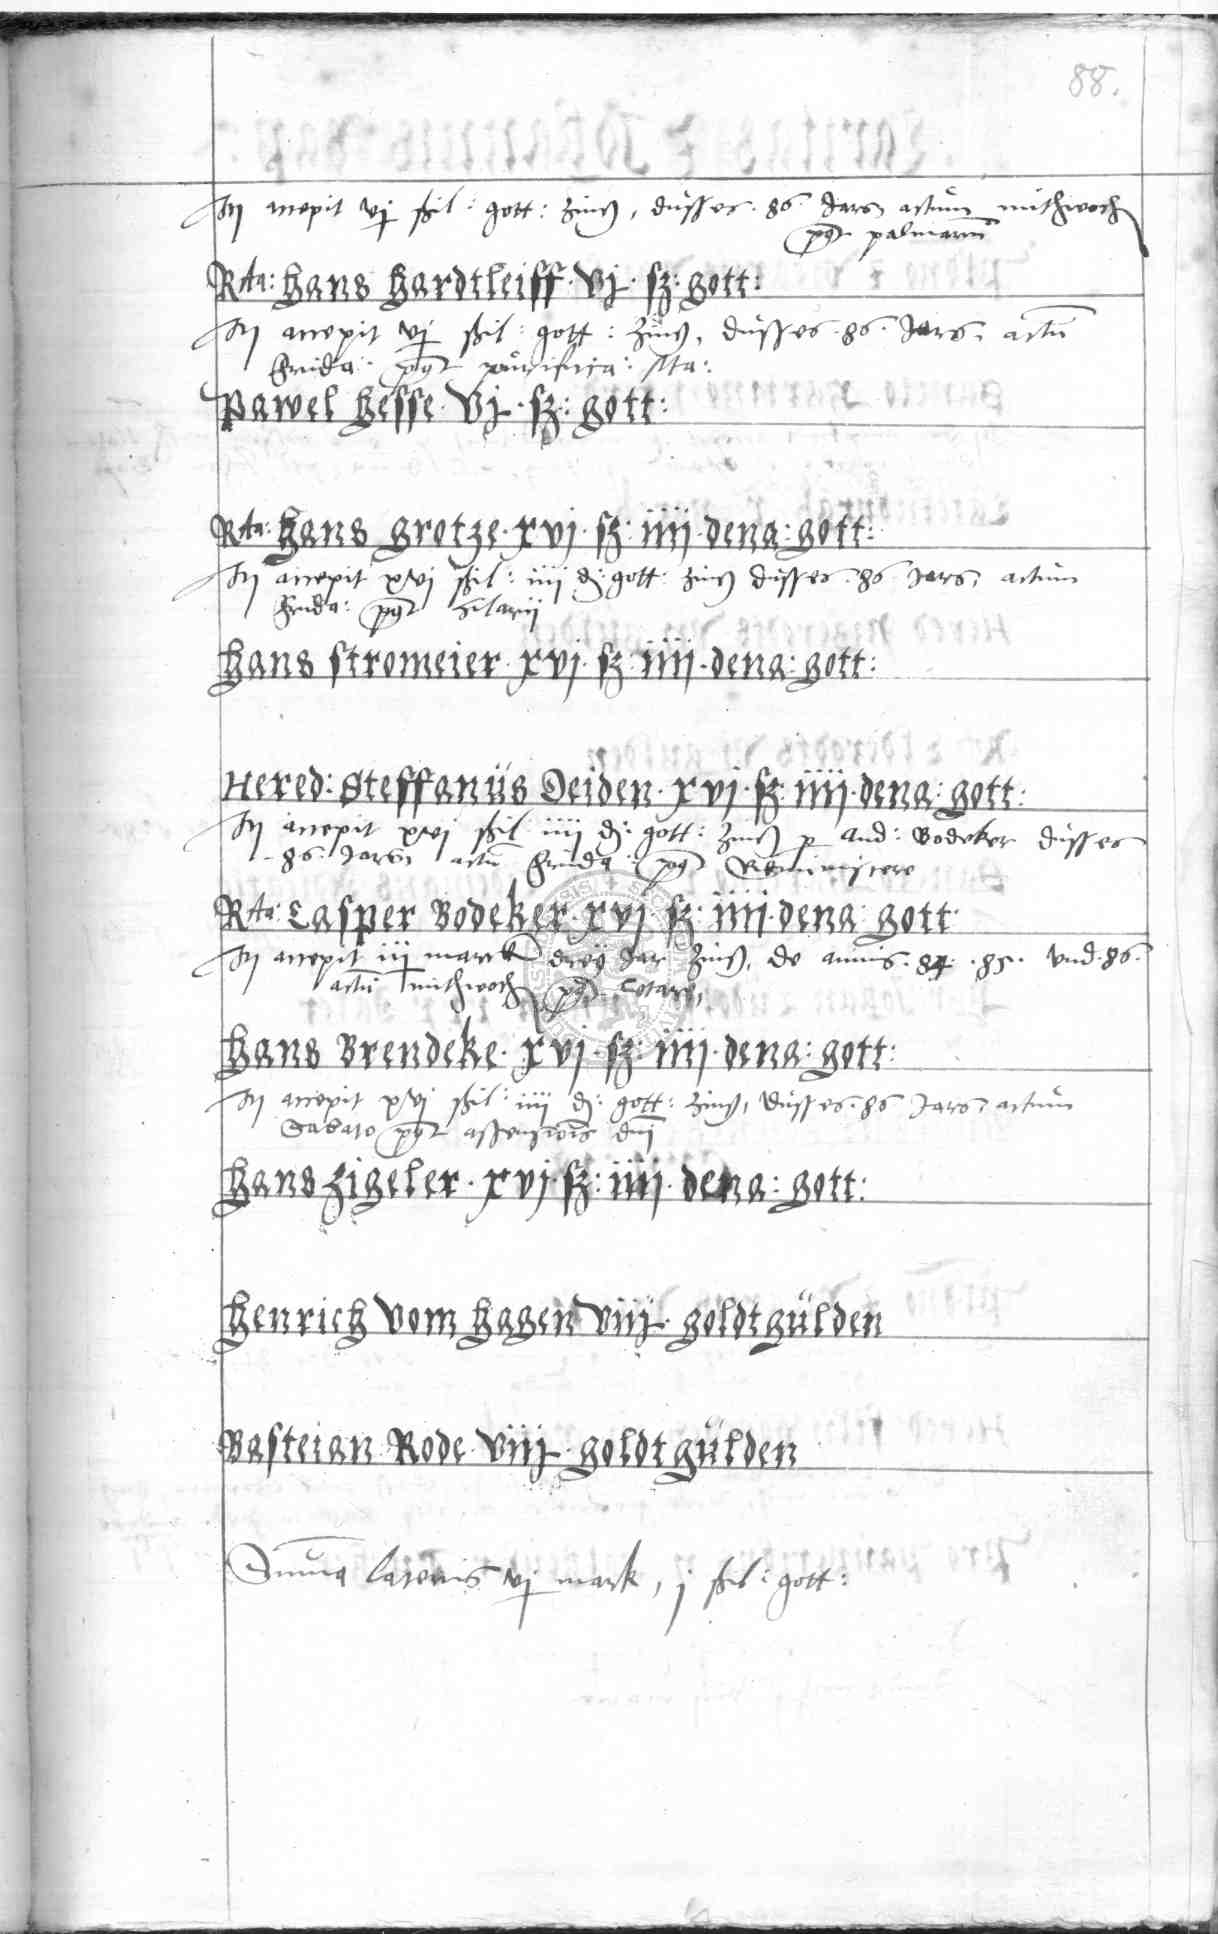 88.
accepit vj ßil: gott: Zinß, düsses .86. Jars actum mithwoch
post palmarum
Rta: Hans Hardtleiff. vj. sz: gott:
accepit vj ßil: gott: Zinß, düsses .86. Jars, actum
frida: post purifica: Ma:
Pawel Hesse. vj. sz: gott:
Rta: Hans Grotze. xvj. sz: iiij. dena: gott:
accepit xvj ßil: iiij d: gott: Zinß düsses .86 Jars, actum
frida: post Hilarij
Hans Stromeier. xvj. sz: iiij. dena: gott:
Hered: Steffanüs Deiden. xvj. sz: iiij. dena: gott:
accepit xvj ßil iiij d: gott: Zinß p And: Bodeker düsses
.86. Jars actum frida: post Reminiscere
Rta: Casper Bodeker. xvj. sz: iiij. dena: gott
accepit iij marck drey Jar Zinß, de annis .84. .85. vnd .86.
actum mithwoch post
Hans Brendeke. xvj. sz: iiij. dena: gott:
accepit xvj ßil: iiij d: gott: Zinß, düsses .86 Jars, actum
Sabato post assensiois dni
Hans Zigeler. xvj. sz: iiij. dena: gott:
Henrich vom Hagen viij. goldtgülden
Basteian Rode viij. goldtgülden
Suma lateris vj mark, j ßil: gott: